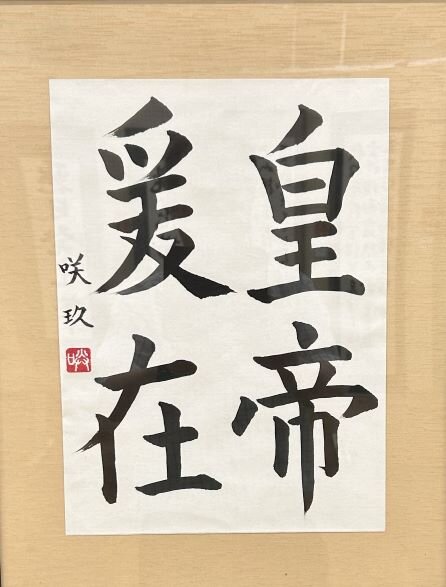 皇帝
爰在
咲玖
咲